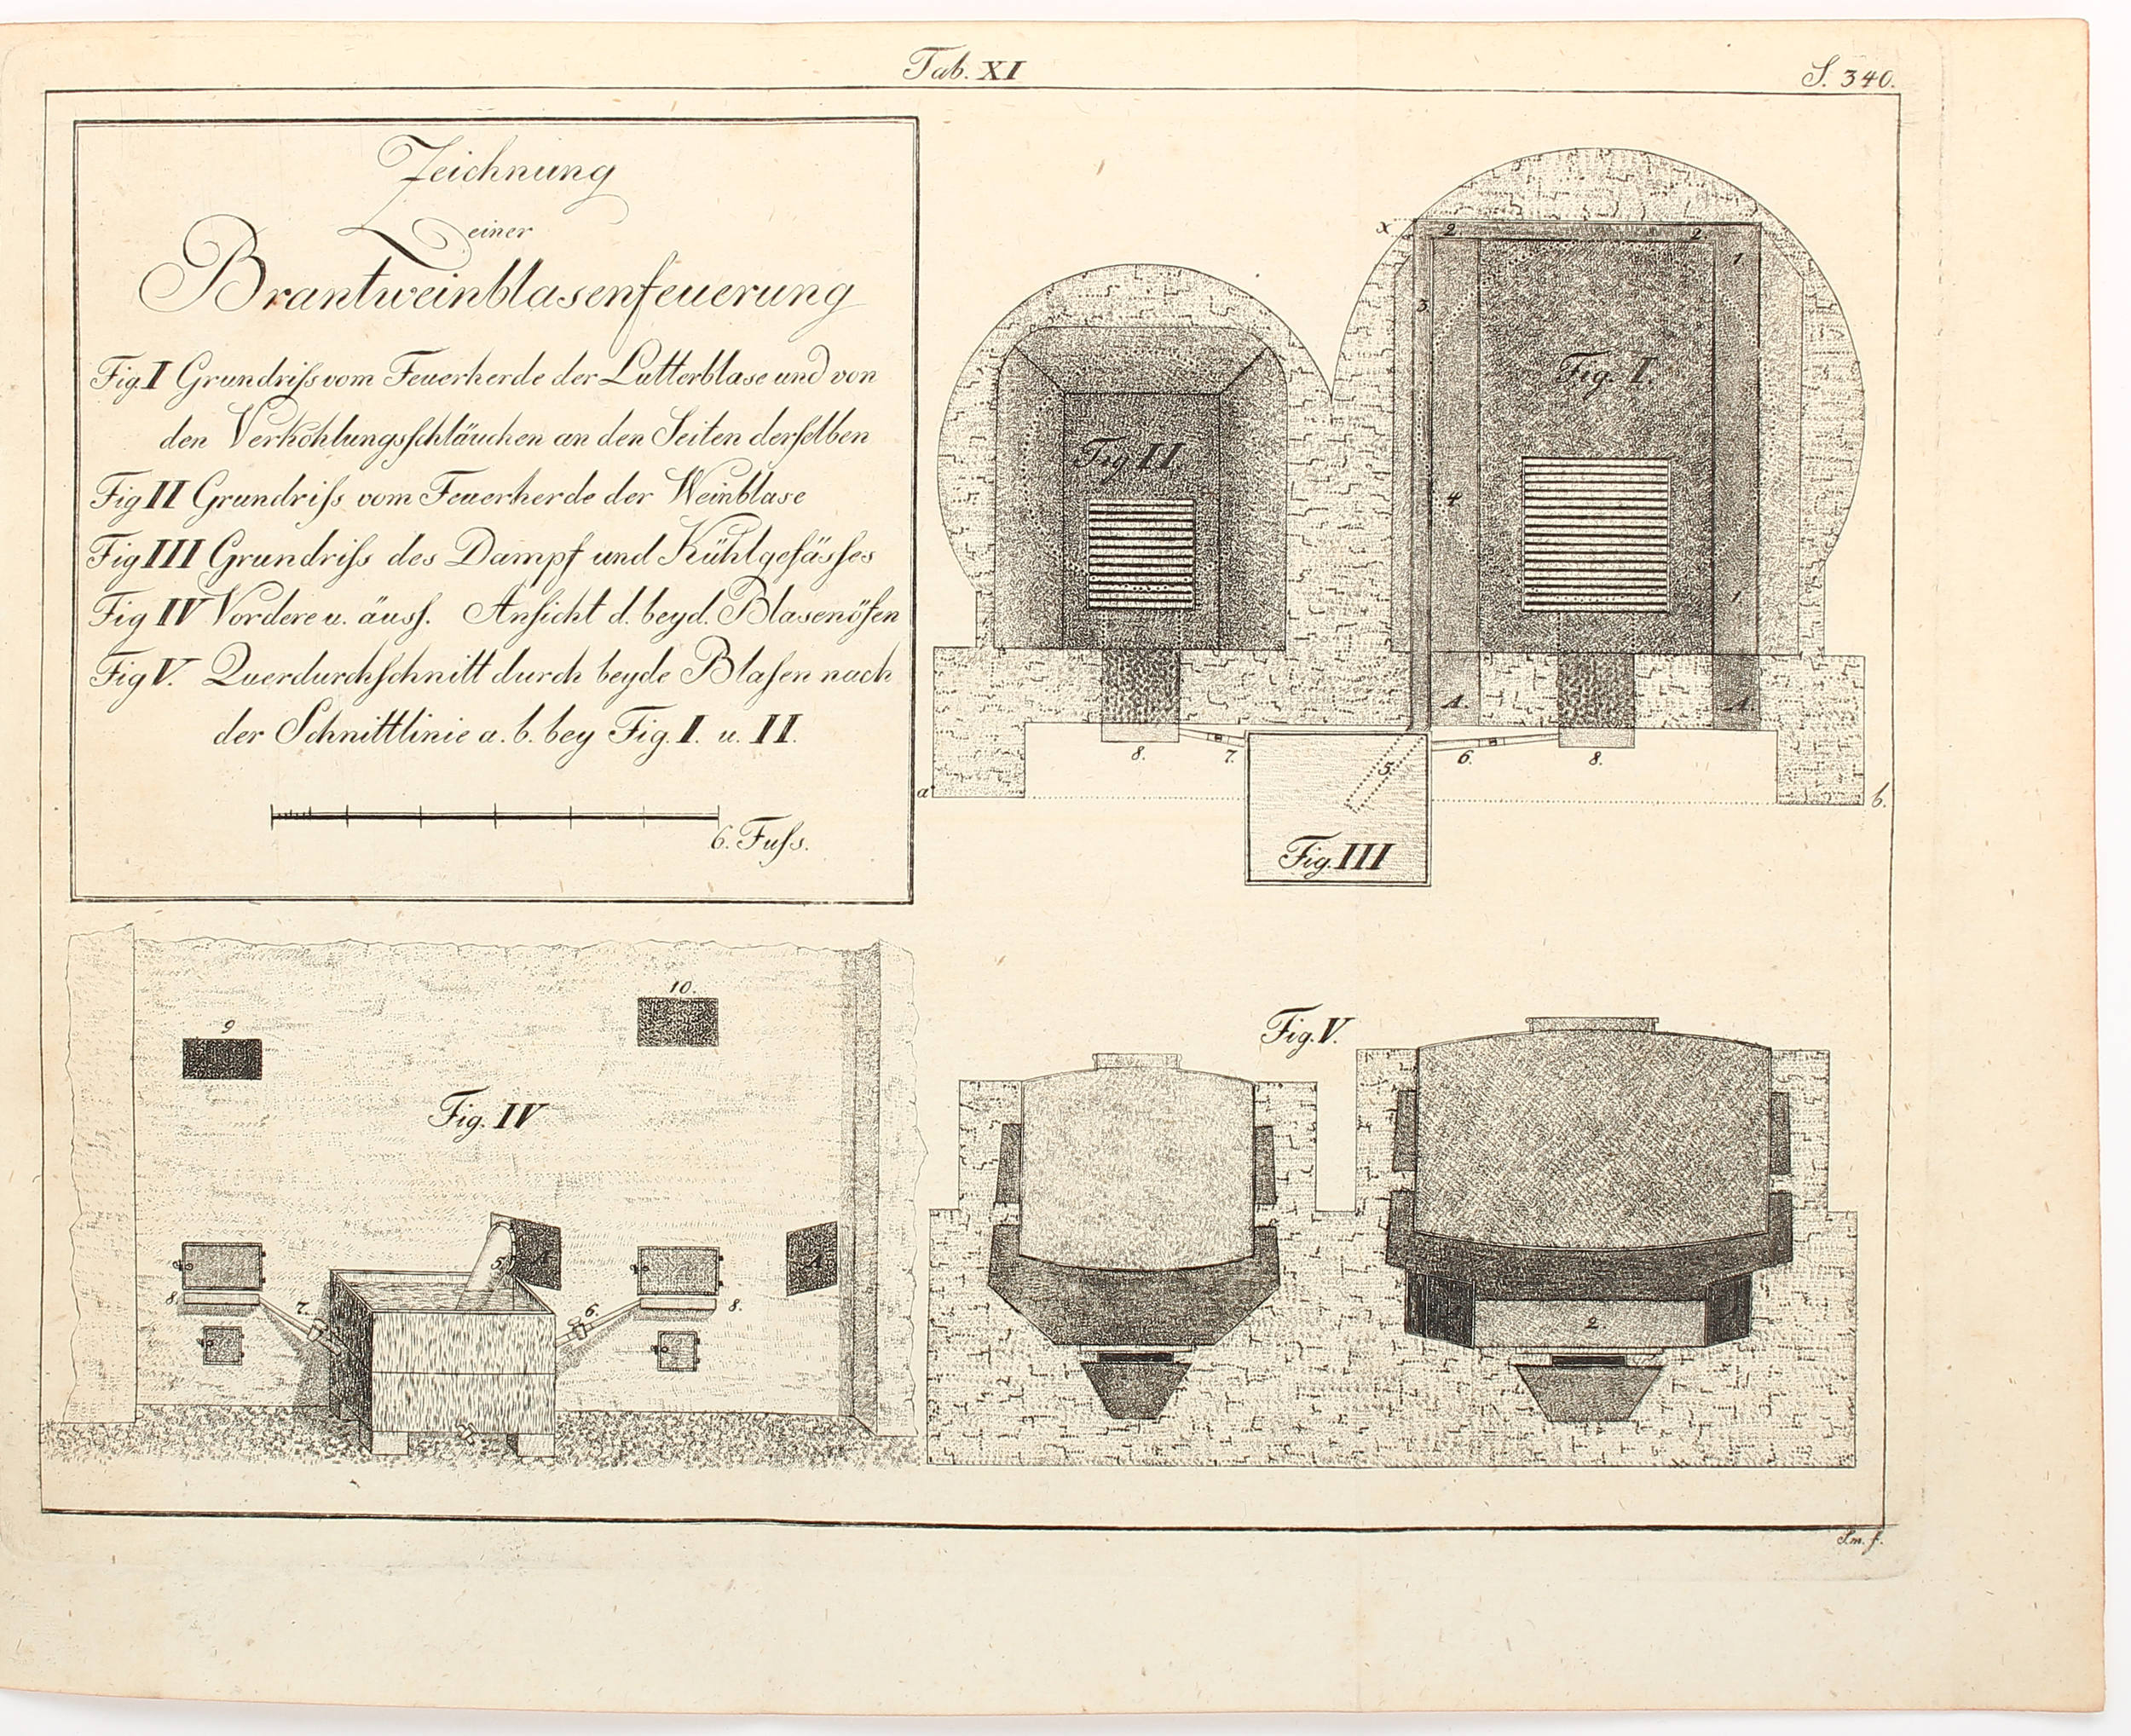 Tab. XI
S. 340.
Zeichnung
einer
Brantweinblasenfeuerung
Fig. I Grundriſs vom Feuerherde der Lutterblase und von
den Verkohlungsſchläuchen an den Seiten derſelben
Fig II Grundriſs vom Feuerherde der Weinblase
Fig III Grundriſs des Dampf und Kühlgefäſſes
Fig IV Vordere u. äuſſ. Anſicht d. beyd. Blasenöfen
Fig V. Querdurchſchnitt durch beyde Blaſen nach
der Schnittlinie a. b. bey Fig. I. u. II.
6. Fuſs.
x
2
2.
1
3.
Fig. I.
Fig II.
4
1
A.
A.
8.
7.
5.
6.
8.
a
b.
Fig. III
10.
9
Fig. IV
5.
A
A
8.
7.
6.
8.
Fig. V.
2.
Sm. f.